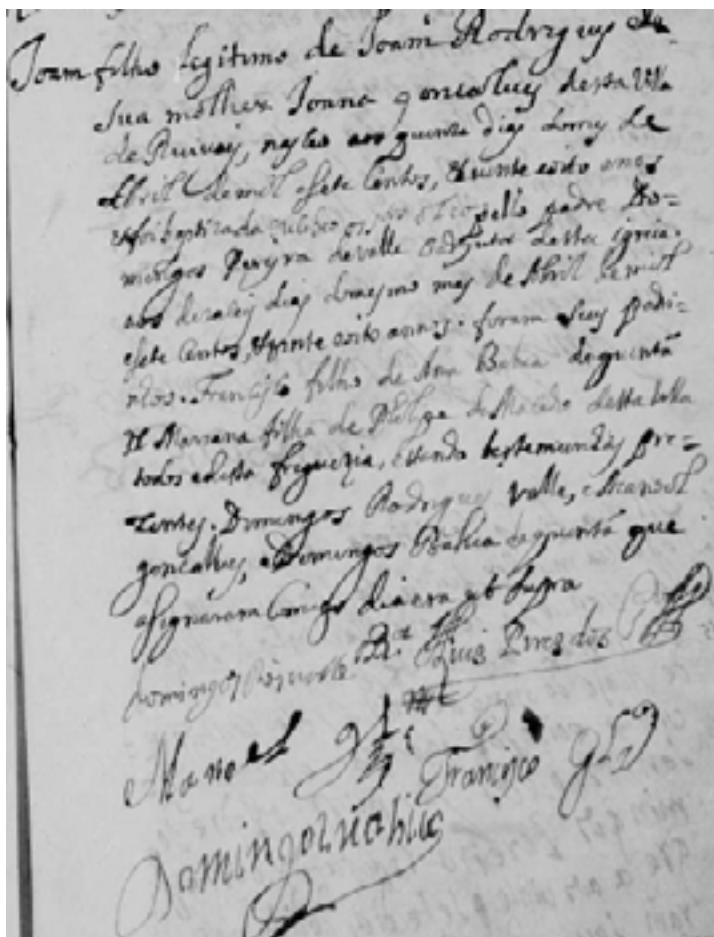 Joam filho legitimo de Joam Rodrigues e de
sua molher Joana goncalues desta Villa
de Ruivaes, nasceo aos quinze dias do mes de
Abril de mil e sete Centos, e vinte e oito anos
e foi baptizado pello padre Do=
mingos Pereyra do valle desta igreia.
aos dezaseis dias do mesmo mes de Abril de mil
e sete Centos, e vinte e oito annos. foram seus padri=
nhos. Francisco filho de Ana Bahia de quintã
e Mariana filha de de Macedo desta villa
todos e desta freguezia, e sendo testemunhas pre=
zentes. Domingos Rodrigues Valle, e Manoel
goncalues, e Domingos Bahia de quintã que
asignaram Comigo dia era ut supra
Domingos Luis Pires dos
Manoel
Francisco
Domingos Bahia